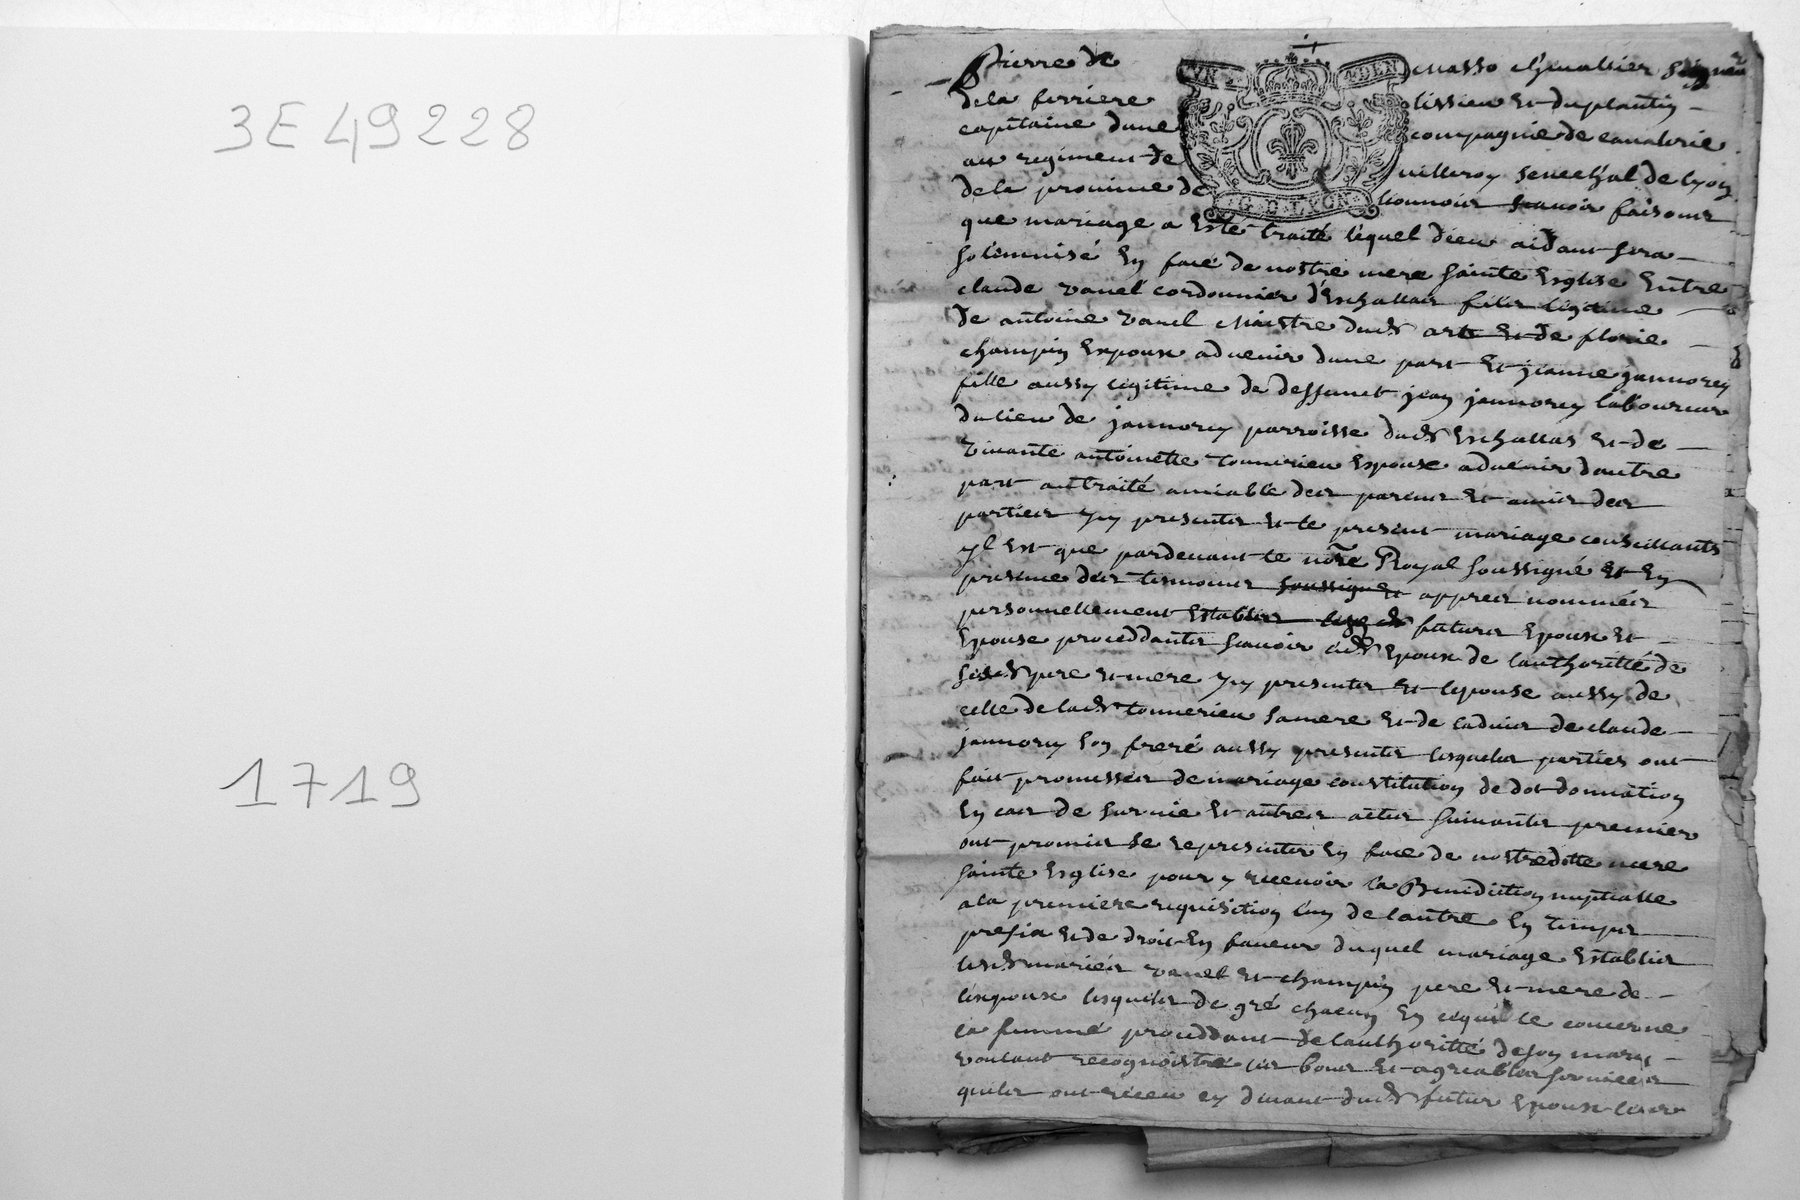 3E 49228
1719
Pierre de masso chevallier seigneur
dela ferriere lissieu et duplantin
capitaine dune compagnie de cavalerie
au regiment de villeroy senechal de lyon
dela province de lionnois scavoir faisons
que mariage a esté traité lequel dieu aidant sera
solemnisé en face de nostre mere sainte Esglise Entre
claude vanel cordonnier d'Eschallas fils legitime
de antoine vanel Maistre dudt art et de florie
champin Expoux advenir dune part et jeanne jannorey
fille aussy legitime de deffunct jean jannorey laboureur
du lieu de jannorey parroisse dudt Eschallas et de
vivante antoinette Espouse advenir dautre
part au traité amiable des parens et amis des
parties yey presents et le present mariage conseillants
yl Est que pardevant le nore Royal soussigné et En
presence des tesmoins soussignes appres nommés
personnellement Establis futurs Epoux et
Epouse proceddants scavoir ledt Epoux de lauthoritté de
sesdts pere et mere yey presents et lepouse aussy de
celle de ladt samere et de ladvis de claude
jannorey son frere aussy presents lesqueles parties ont
fait promesses de mariage constitution de dot donnation
En cas de survie et autres actes suivants premier
ont promis se representer En face de nostredette mere
sainte Esglise pour y recevoir la Benediction nuptialle
a la premiere requisition lun de lautre En temps
prefix et de droit En faveur duquel mariage Establis
lesdts mariés vanel et champin pere et mere de
lexpoux lesquels de gré chacun En cequi le concerne
la femme proceddant de lauthoritté deson mary
voulant recognoistre les bons et agreables services
quils ont receu cy devant dudt futur Epoux leur
UN DEN
G. D. LYON